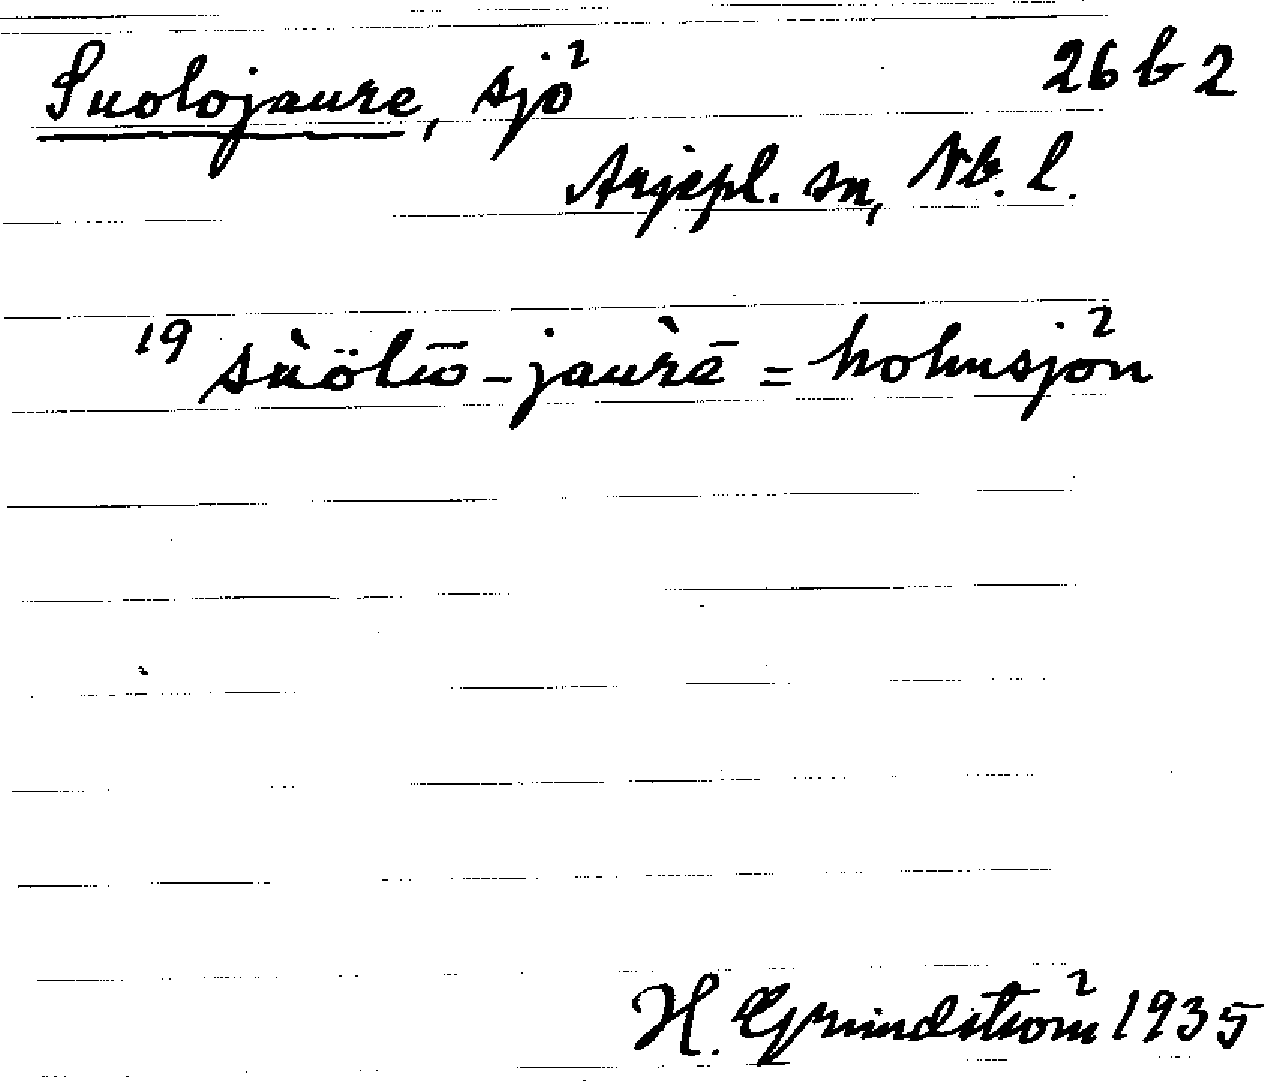 Suolojaure, sjö 26 b 2
Arjepl. sn, Nb. l.
19 sùölω̄-jaùrē = holmsjön
H. Grundström 1935